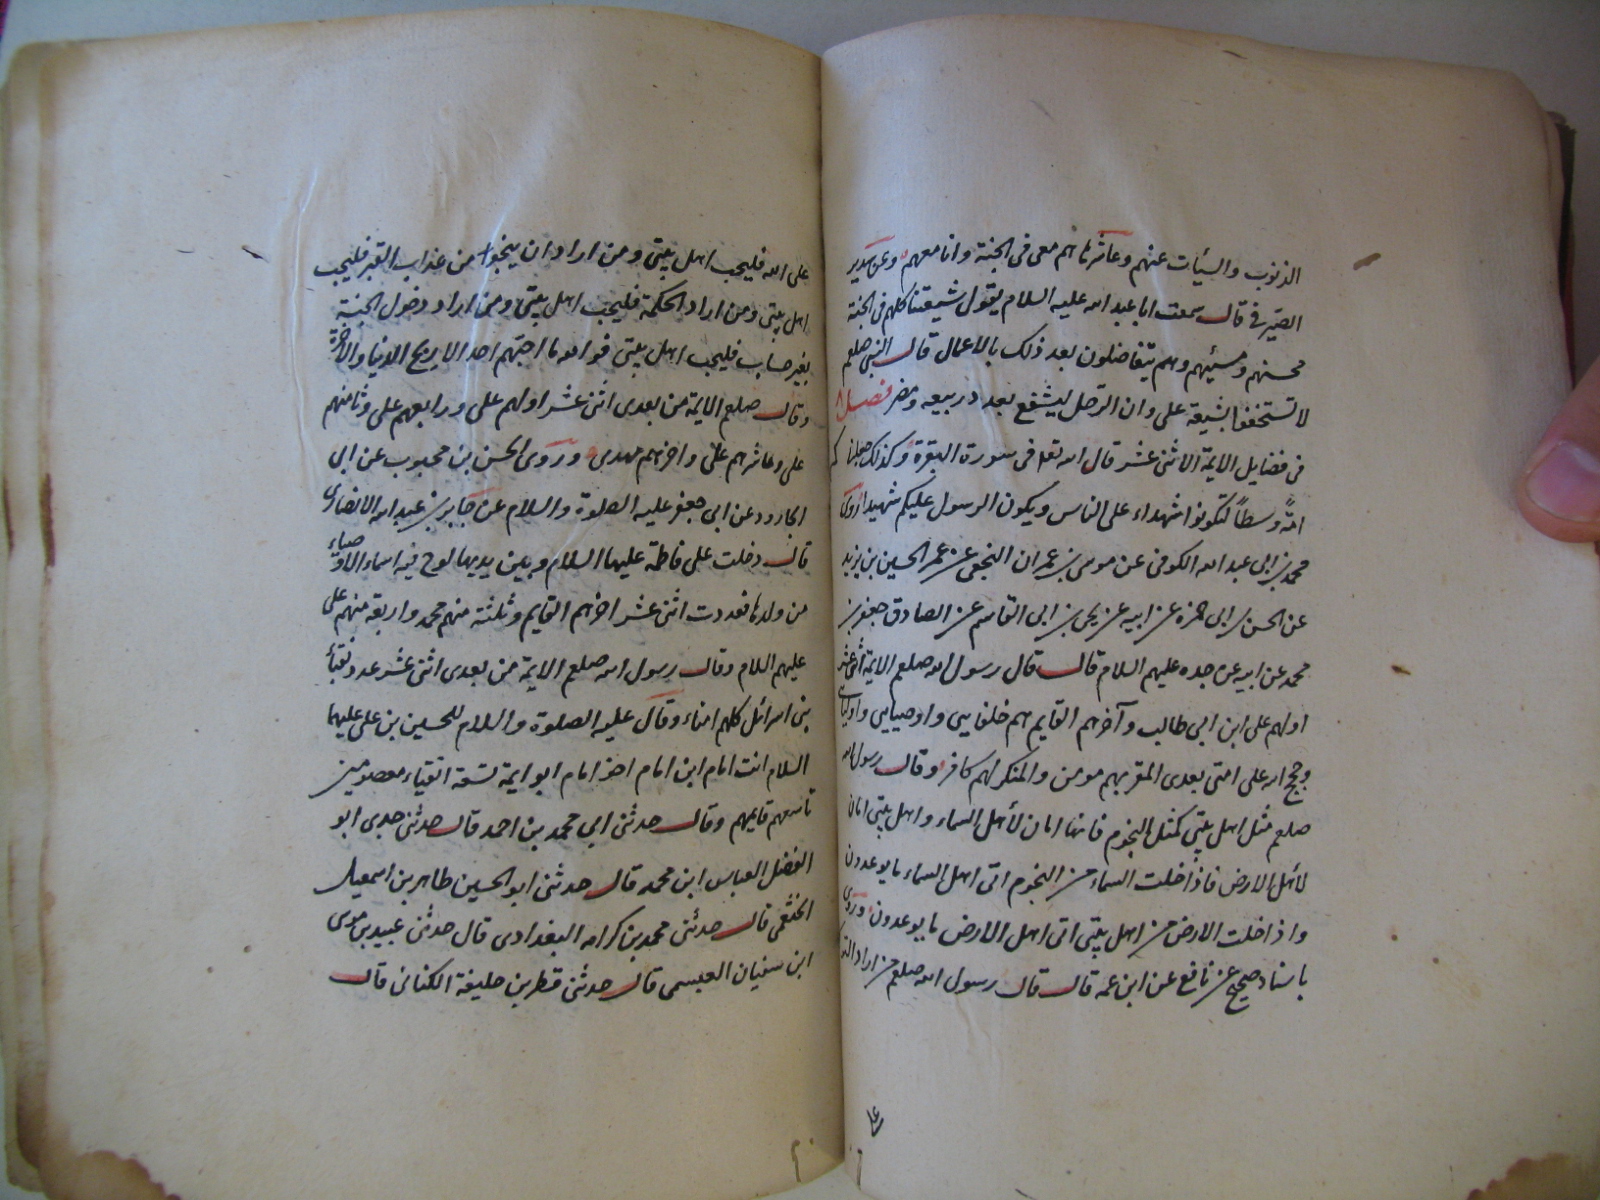 الذنوب والسيئات عنهم وعاشرتاهم معى فى الجنة وانا معهم وعن سدير
الصيرفى قال سمعت ابا عبد الله عليه السلام يقول شيعتنا كلهم فى الجنة
محسنهم ومسيئهم وهم يتفاضلون بعد ذلك بالاعمال قال النبى صلعم
لا تستخفوا بشيعة على وان الرجل ليشفع بعدد ربيعه ومضر فصل
فى فضايل الايمة الاثنى عشر قال الله تعا فى سورة البقرة وكذلك جعلناكم
امةً وسطاً لتكونوا شهداء على الناس ويكون الرسول عليكم شهيدا روى
محمد بن ابى عبد الله الكوفى عن موسى بن عمران النخعى عن عمه الحسين بن يزيد
عن الحسن بن ابى حمزه عن ابيه عن يحيى بن ابى القاسم عن الصادق جعفر بن
محمد عن ابيه عن جده عليهم السلام قال قال رسول الله صلعم الايمة اثنى عشر
اولهم على ابن ابى طالب وآخرهم القايم هم خلفايى واوصيايى واوليائى
وحجج الله على امتى بعدى المقر بهم مومن والمنكر لهم كافر وقال رسول الله
صلعم مثل اهل بيتى كمثل النجوم فانها امان لأهل السماء واهل بيتى امان
لأهل الارض فاذا خلت السماء من النجوم اتى اهل السماء ما يوعدون
واذا خلت الارض من اهل بيتى اتى اهل الارض ما يوعدون وروى
باسناد صحيح عن نافع عن ابن عمه قال قال رسول الله صلعم من اراد التوكل
على الله فليحب اهل بيتى ومن اراد ان ينجوا من عذاب القبر فليحب
اهل بيتى ومن اراد الحكمة فليحب اهل بيتى ومن اراد دخول الجنة
بغير حساب فليحب اهل بيتى فوالله ما احبهم احد الا ربح الدنيا والاخرة
وقال صلعم الايمة من بعدى اثنى عشر اولهم على ورابعهم على وثامنهم
على وعاشرهم على واخرهم مهدى وروى الحسن بن محبوب عن ابى
الجارود عن ابى جعفر عليه الصلوة والسلام عن جابر بن عبد الله الانصارى
قال دخلت على فاطمة عليها السلام وبين يديها لوح فيه اسماء الاوصياء
من ولدها فعددت اثنى عشر اخرهم القايم وثلثة منهم محمد واربعة منهم على
عليهم السلام وقال رسول الله صلعم الايمة من بعدى اثنى عشر عدد نقباء
بنى اسرائل كلهم امناء وقال عليه الصلوة والسلام للحسين بن على عليهما
السلام انت امام ابن امام اخو امام ابو ايمة تسعة اتقياء معصومين
تاسعهم قايمهم وقال حدثنى ابى محمد بن احمد قال حدثنى جدى ابو
الفضل العباس ابن محمد قال حدثنى ابو الحسين طاهر بن اسمعيل
الخثعمى قال حدثنى محمد بن كرامه البغدادى قال حدثنى عبيد بن موسى
ابن سفيان العبسمى قال حدثنى قطر بن خليفة الكنانى قال